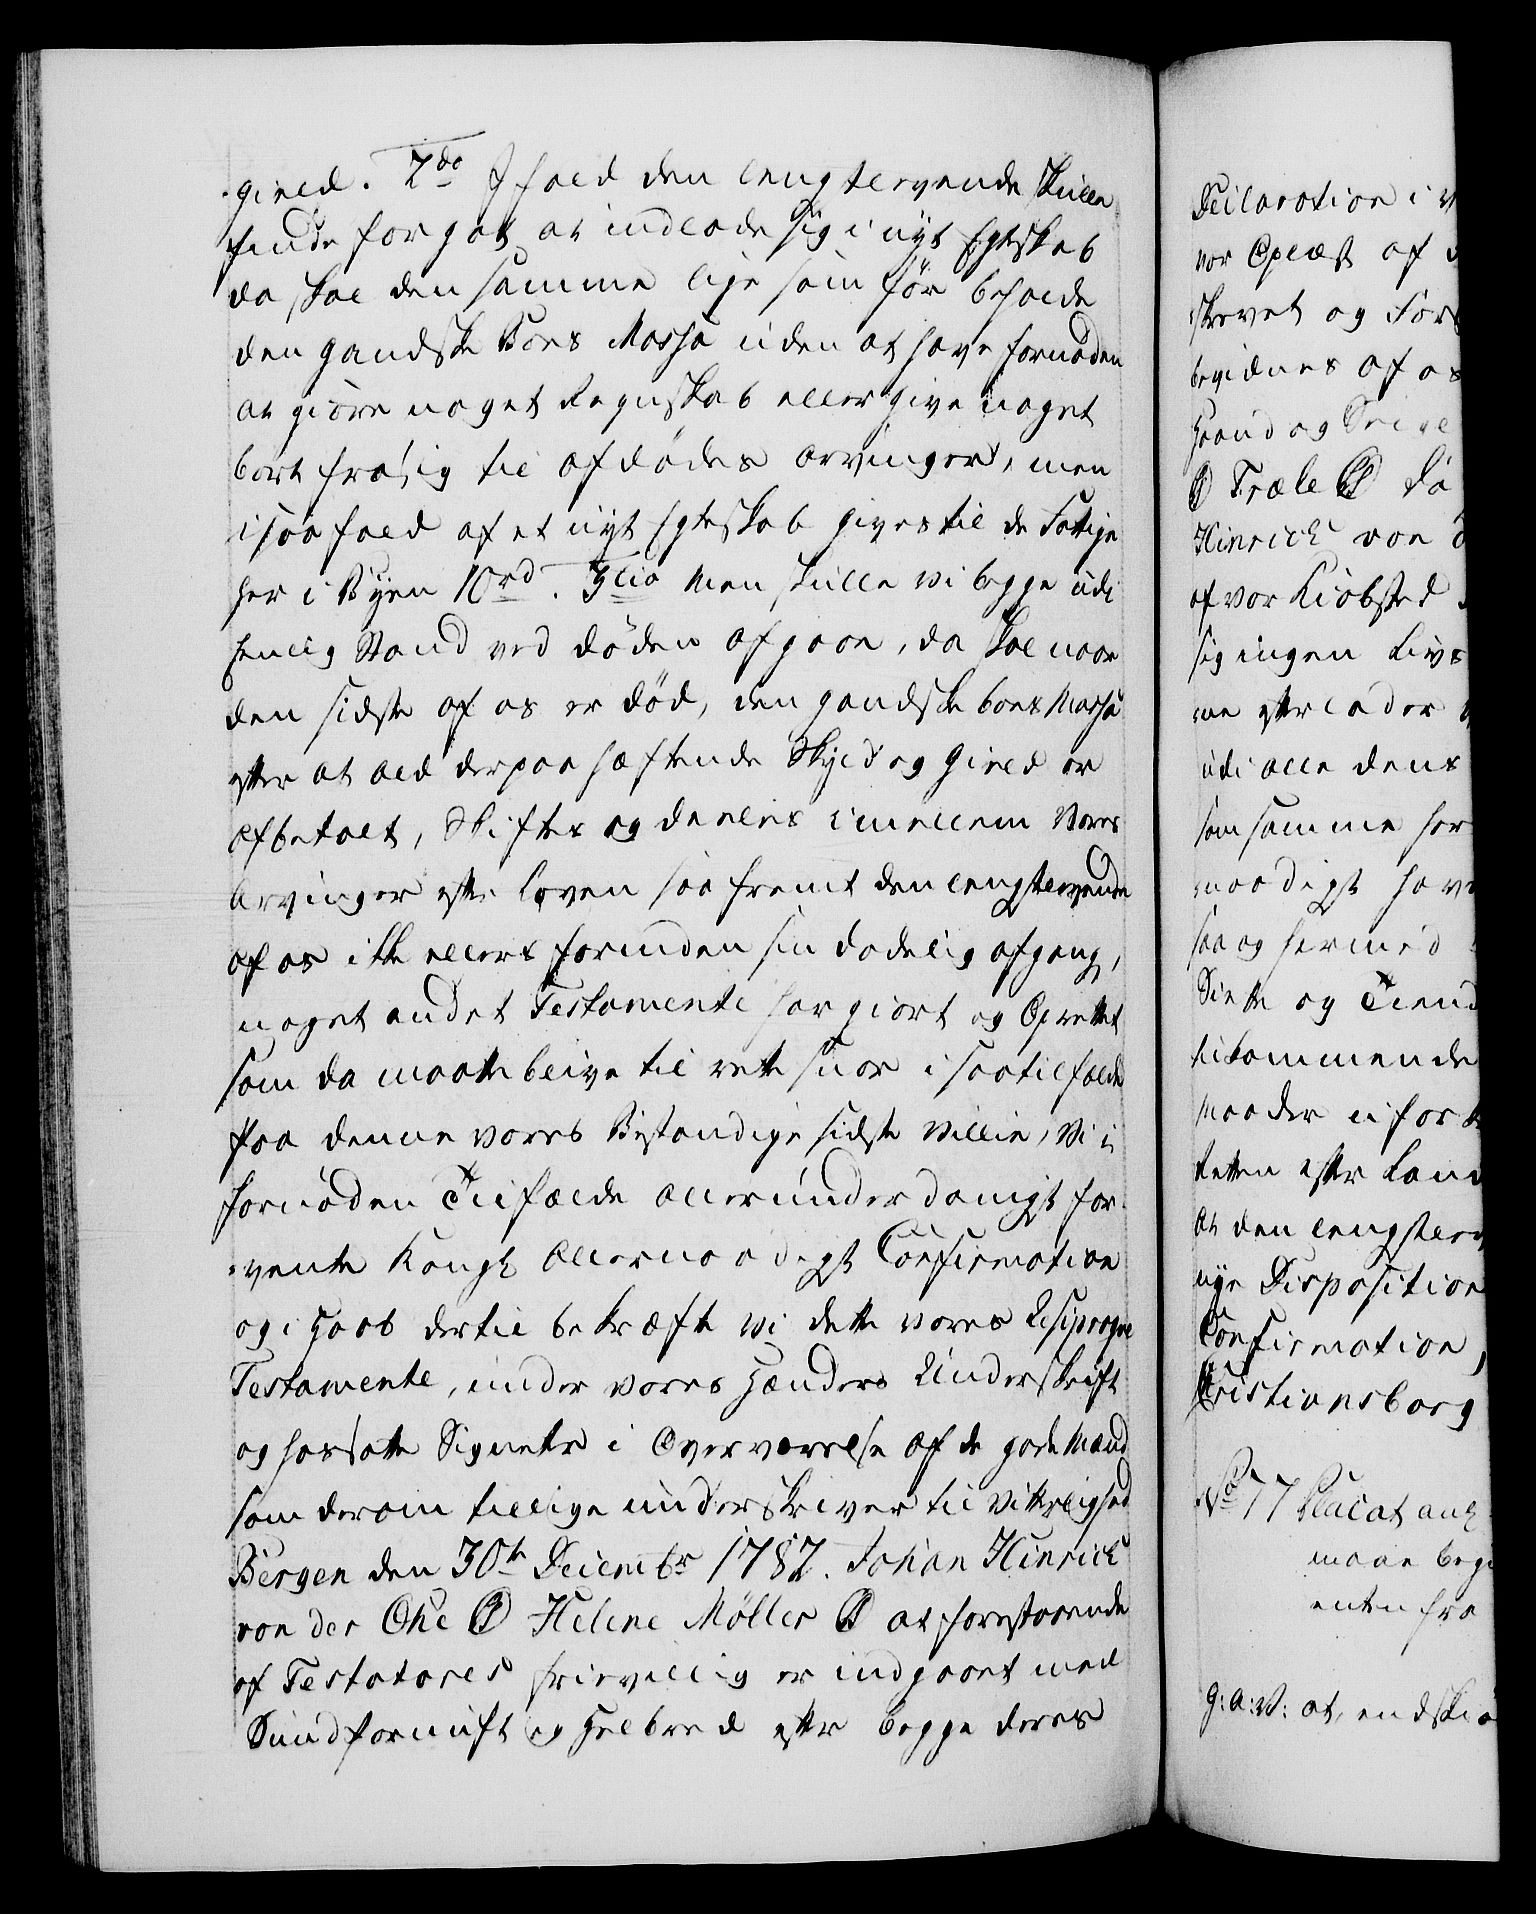 gield. 2do I fald den lengstlevende skulle
finde for got at indlade sig i nyt Egteskab
da skal den samme lige som för beholde
den gandske Boes Massa uden at have fornøden
at giöre noget Regnskab eller give noget
bort fra sig til afdödes Arvinger, men
i saa fald af et nyt Egteskab gives til de Fattige
her i Byen 10rd. 3tio Men skulle vi begge udi
henlig Stand ved döden afgaae, da skal naar
den sidste af os er död, den gandske boes Massa
efter at ald derpaa hæftende Skyld og Gield er
afbetalt, Skiftes og deeles imellem Vores
Arvinger efter Loven saa fremt den lengstlevende
af os ikke ellers forinden sin dødelig afgang,
noget andet Testamente har giort og Oprettet
som da maatte blive til rette snor i saa tilfælde
Paa denne vores Bestandige sidste Villie, Vi i
fornøden Tilfælde allerunderdanigst for-
vente Kongl. Allernaadigst Confirmation
og i Haab dertil bekræfte vi dette vores Resiproqve
Testamente, under vores Hænders Underskrift
og hossatte Signeter i Overværelse af de gode Mænd
som derom tillige underskriver til Vitterlighed
Bergen den 30te Decembr 1782. Johan Hinrich
von der Ohe Helene Møller at forestaaende
af Testatores frievillig er indgaaet med
Sund fornuft og Helbred efter begge deres
Declaration i
vor Oplæst af
skrevet og For
bevidnes af os
Haand og Seigl
Træle
Hinrich von
af vor Kiøbsted
sig ingen Livs
me efterlader
udi alle dens
som samme her
naadigst have
saa og hermed
Siette og Tiend
tilkommende
Maader
Retten efter Land
At den lengstlev
nye Disposition
Confirmation,
Kristiansborg
No 77 Placat ang
maae beg
enten fra
G: A: V: at, endskiø